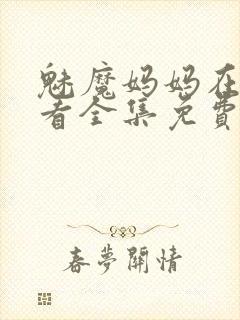 魅魔妈妈在
看全集免費
春夢關情